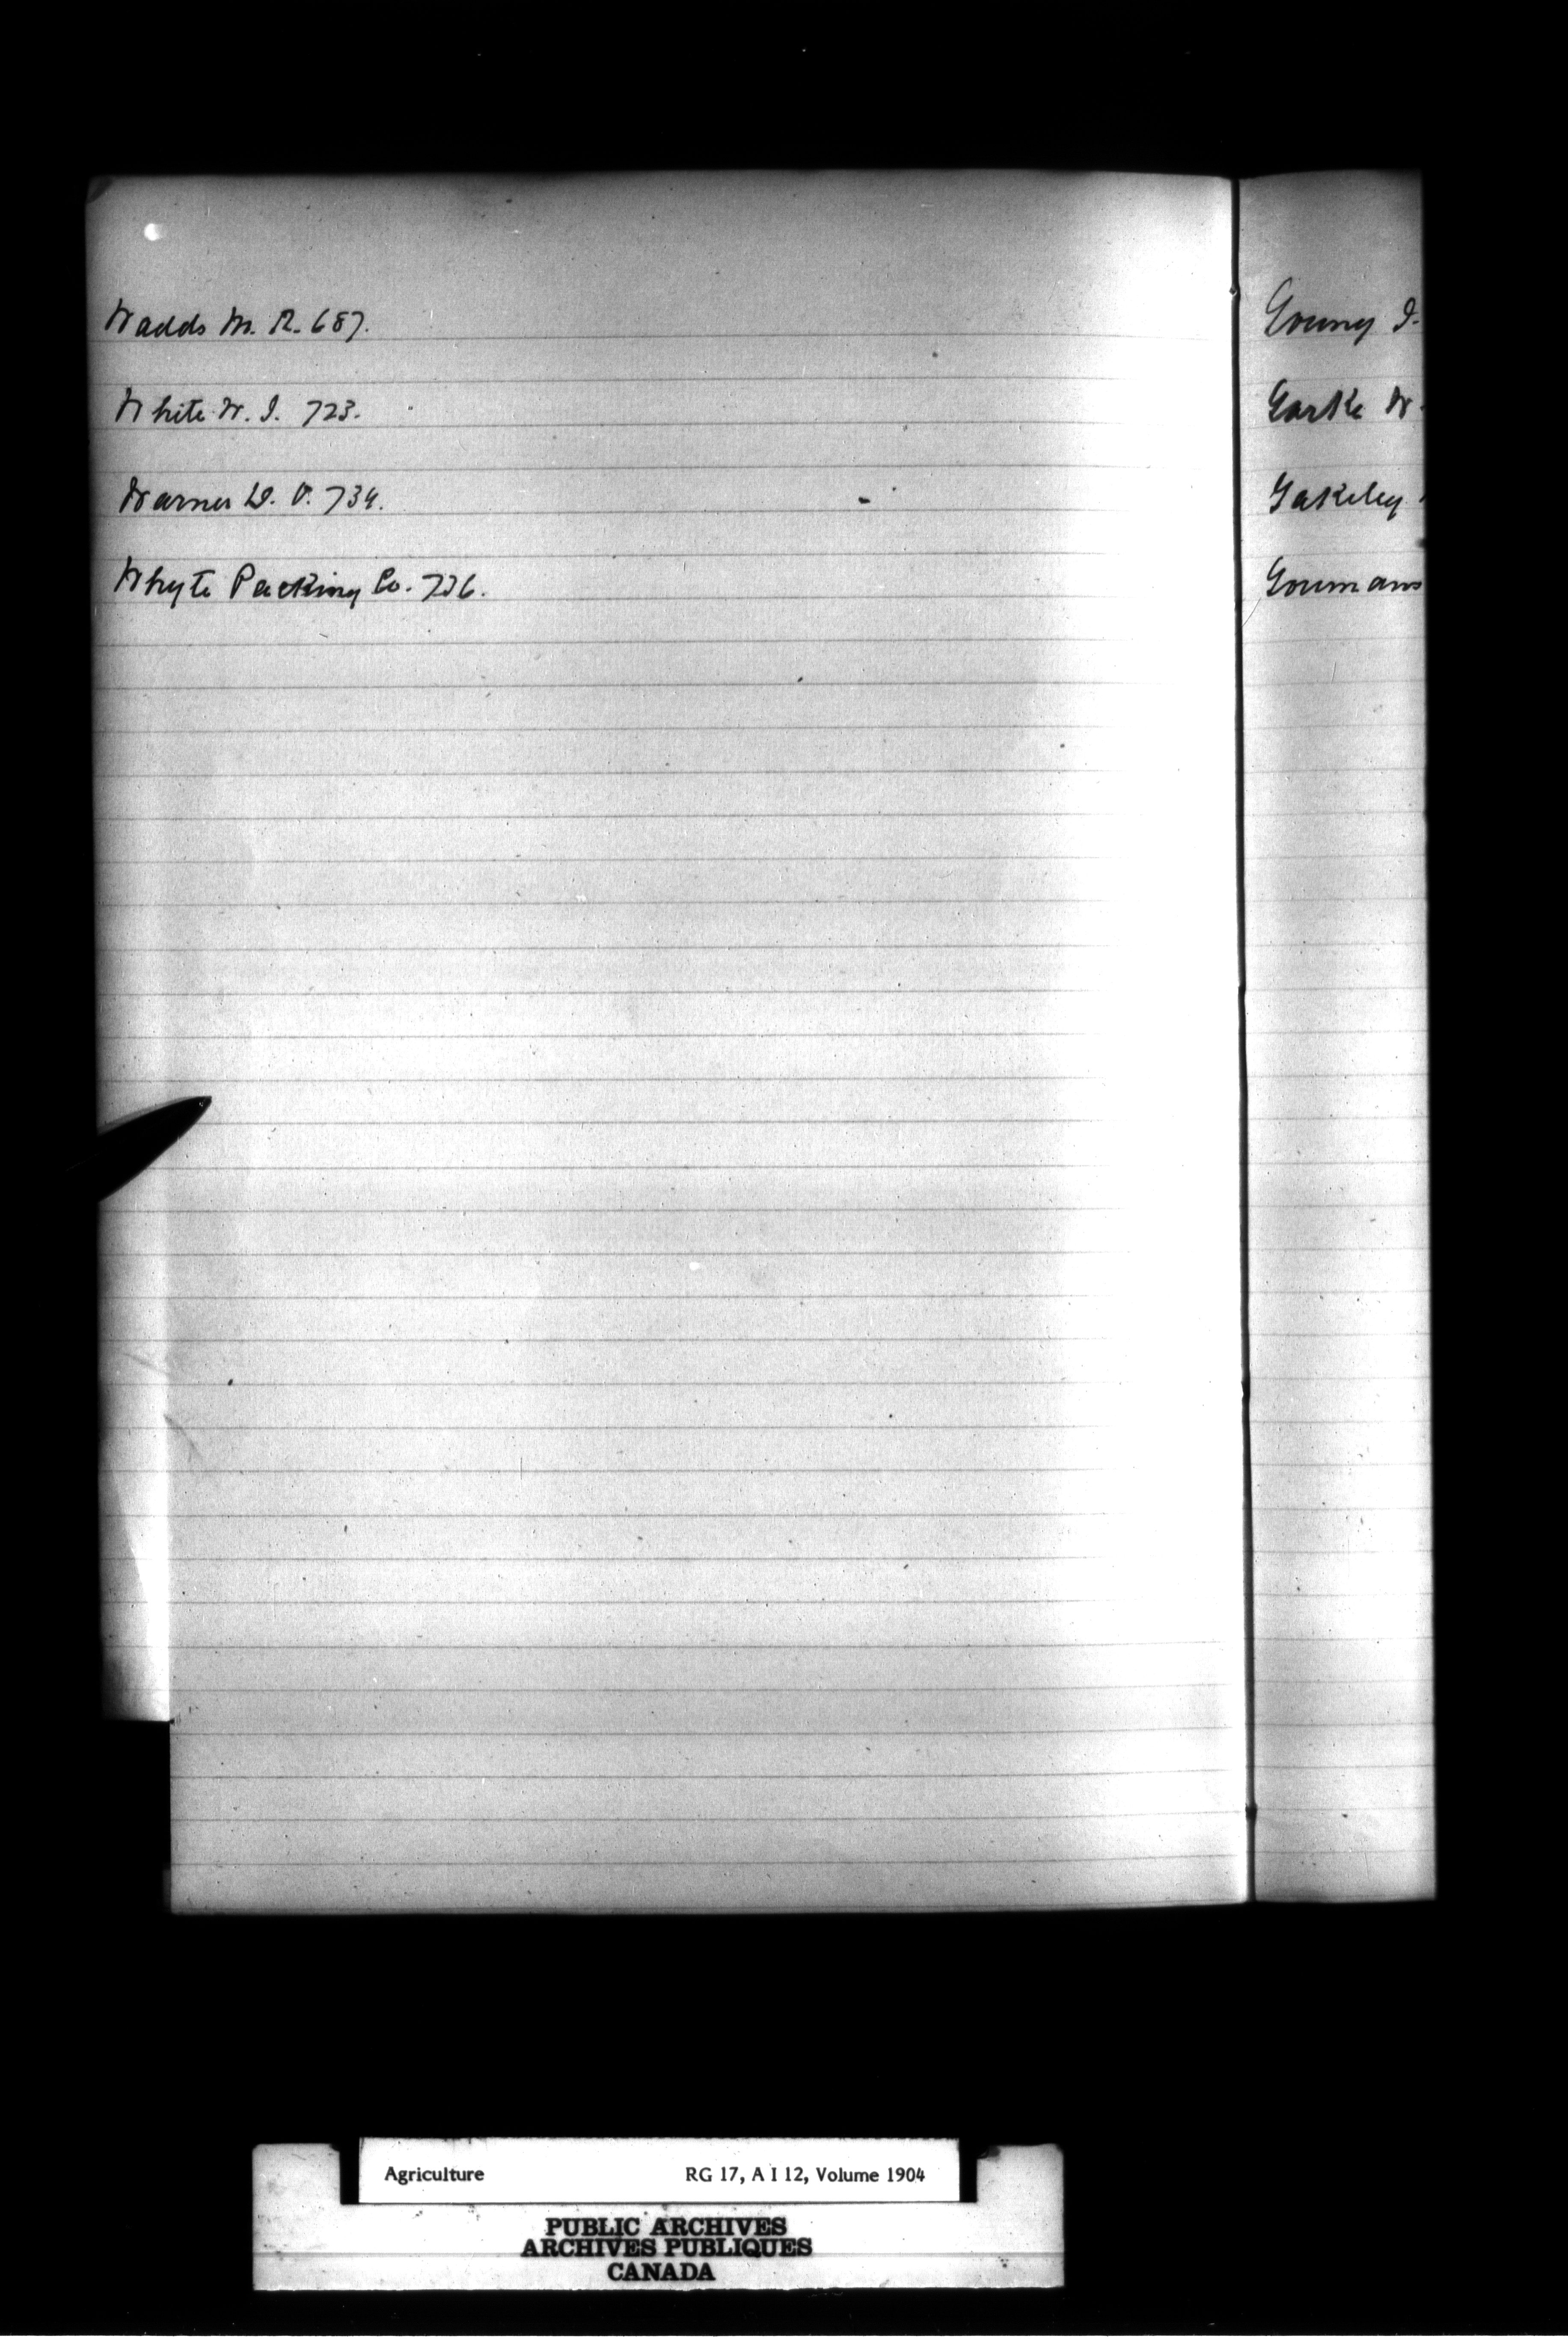 Wadds M. R. 687.
White W. J. 723.
Warner D. V. 734.
Whyte Packing Co. 736.
Young J.
Yorke W.
Yakeley
Youmans
Agriculture RG 17, A I 12, Volume 1904
PUBLIC ARCHIVES
ARCHIVES PUBLIQUES
CANADA